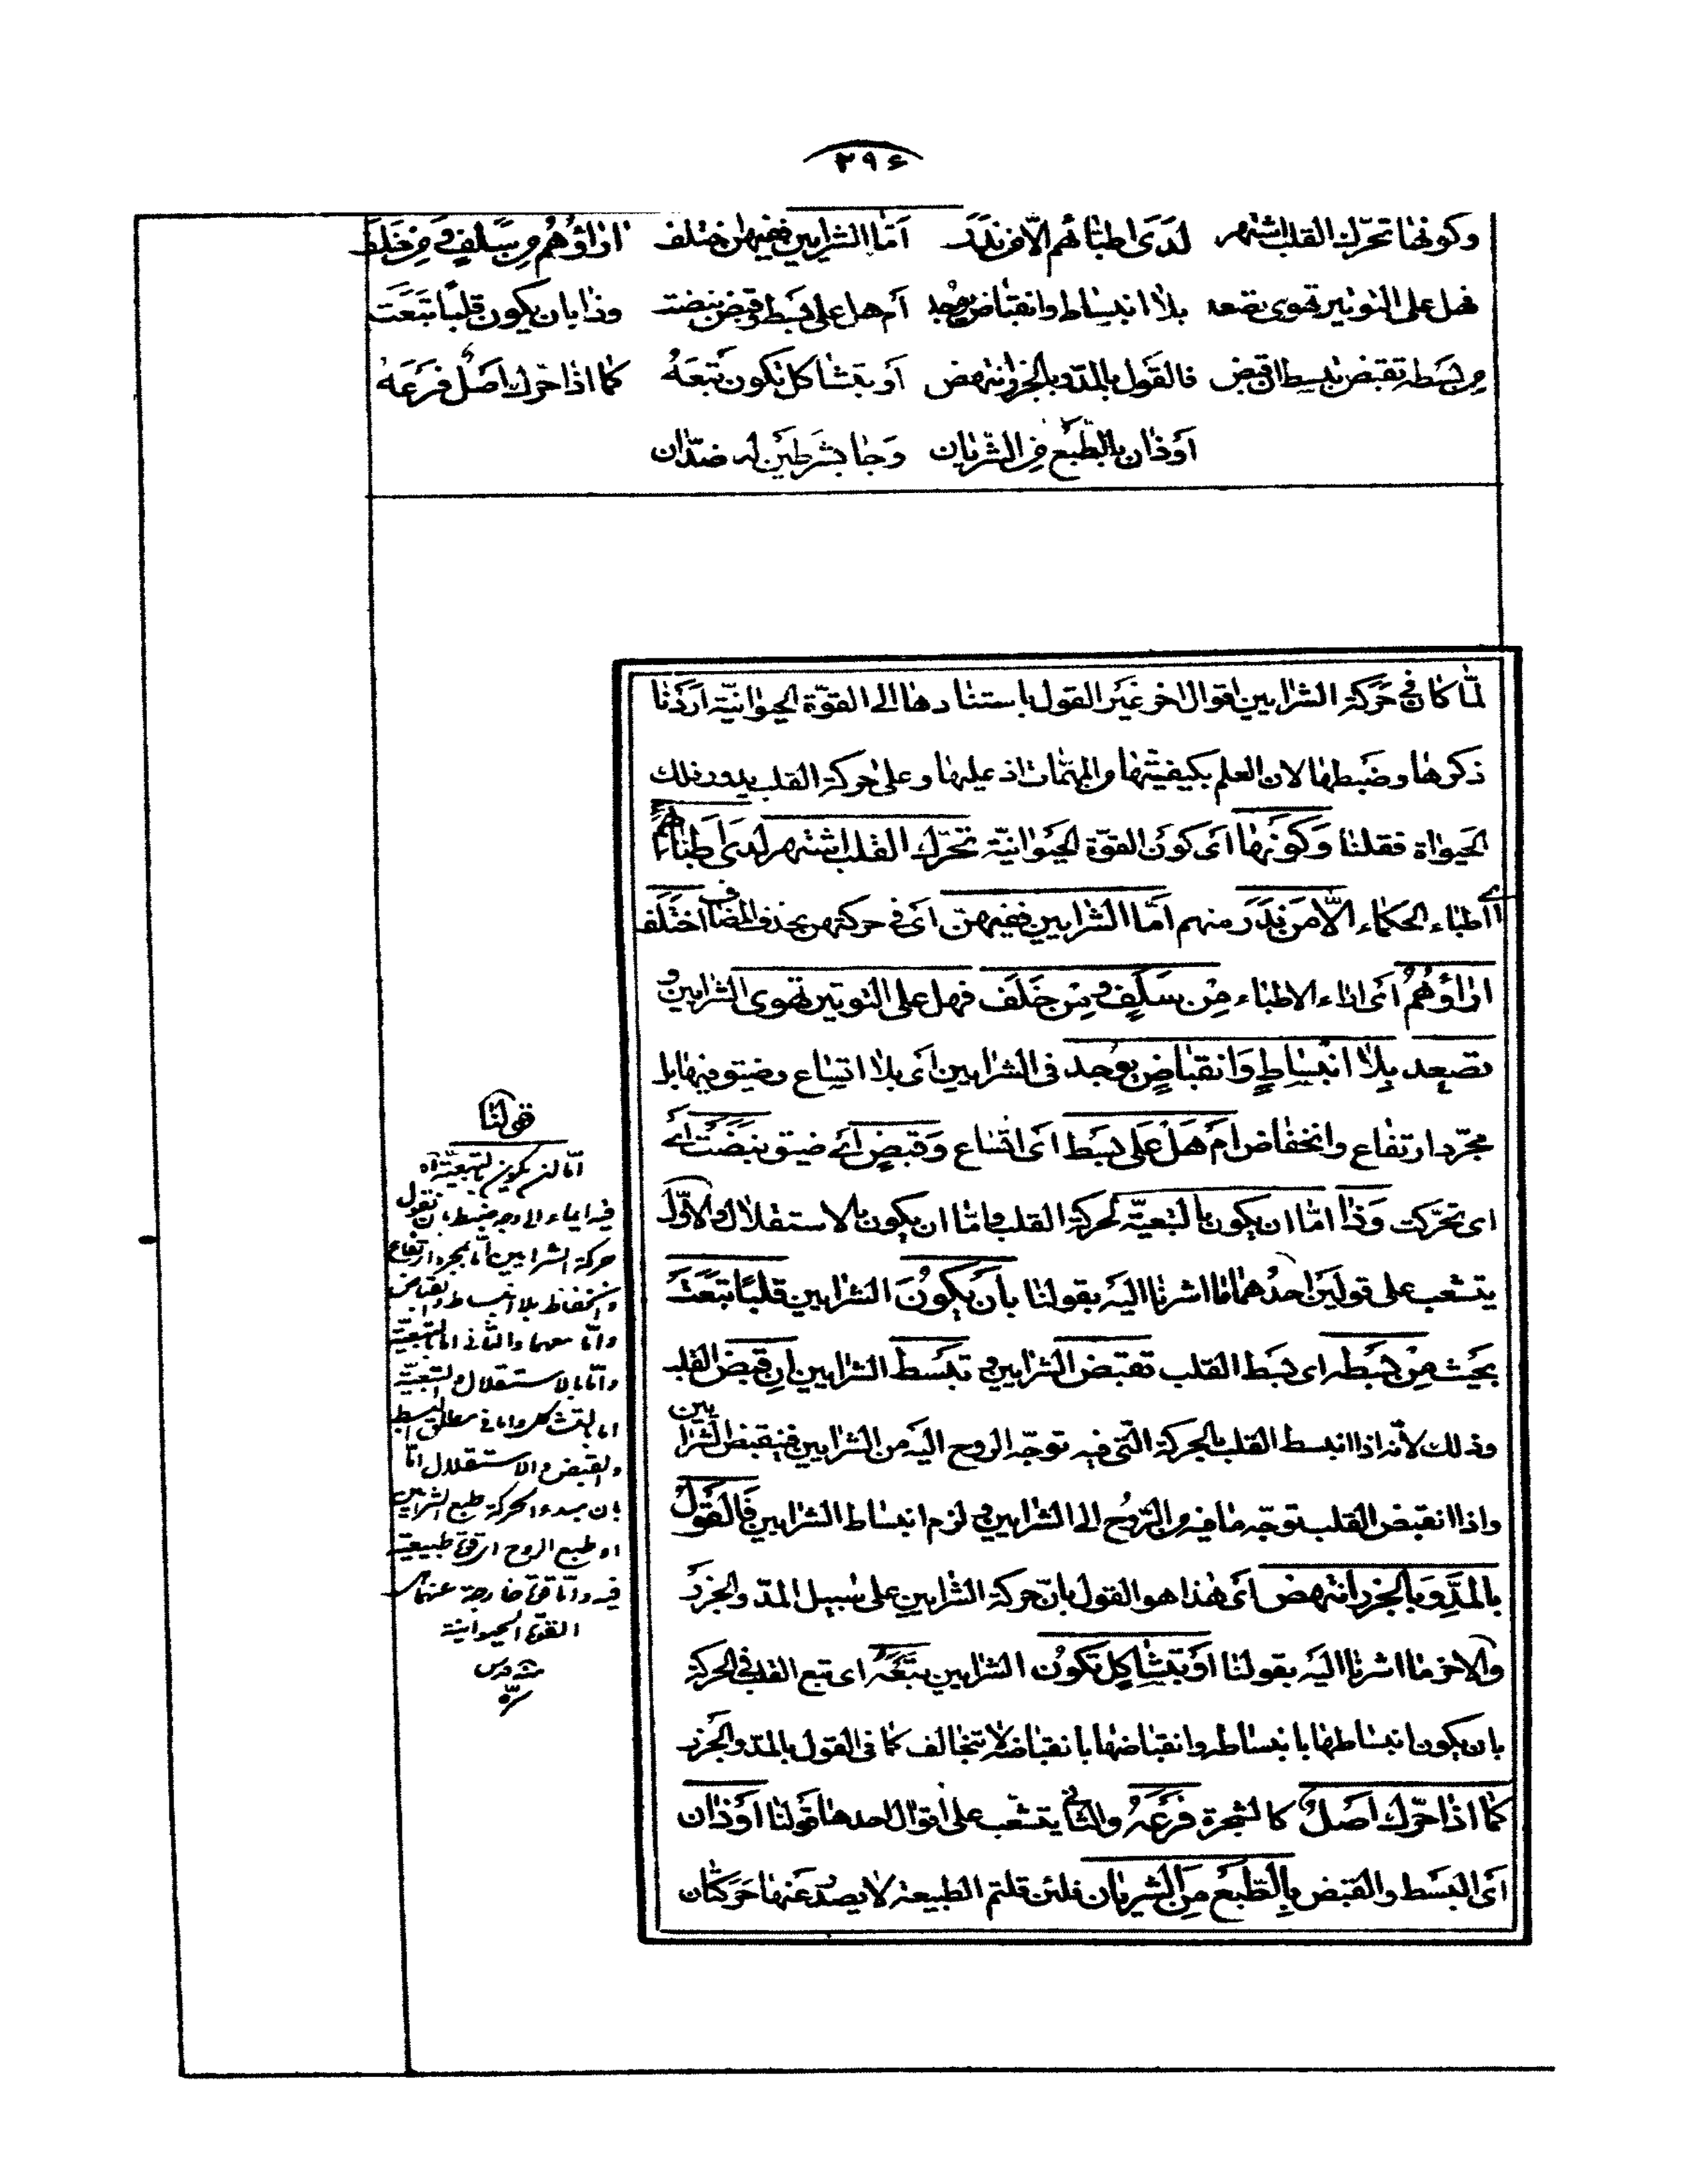 ٢٩۶
وكونها تحرّك القلب اشتهر لدى اطبائهم الّا من ندر أمّا الشرايين ففيهنّ اختلف اراؤهم من سلف و من خلف
فهل على التوتير تهوى تصعد بلا انبساط وانقباض يوجد أم هل على بسط وقبض نبضت وذا بان يكون قلبًا تبعت
من بسطه تقبض تبسط ان قبض فالقول بالمدّ وبالجزر انتهض أو بتشاكل تكون تبعه كما اذا حرّك اصلٌ فرعه
أو ذان بالطبع من الشريان وجا بشرطين له ضدّان
لمّا كان في حركة الشرايين اقوال اخر غير القول باستنادها الى القوّة الحيوانيّة اردنا
ذكرها وضبطها لان العلم بكيفيتها من المهمّات اذ عليها وعلى حركة القلب يدور فلك
الحيواة فقلنا وكونها أى كون القوّة الحيوانيّة تحرّك القلب اشتهر لدى اطبائهم
اى اطباء الحكماء الّا من ندر منهم أمّا الشرايين ففيهنّ أى فى حركتهن بحذف المضاف اختلف
اراؤهم أى اراء الاطباء من سلفٍ و من خلف فهل على التوتير تهوى الشرايين و
تصعد بلا انبساطٍ وانقباضٍ يوجد فى الشرايين أى بلا اتساع وضيق فيها بل
مجّرد ارتفاع وانخفاض أم هل على بسط أى اتّساع وقبضٍ اى ضيق نبضت اى
اى تحرّكت وذا امّا ان يكون بالتبعيّة لحركة القلب وامّا ان يكون بالاستقلال والاوّل
يتشعب على قولين احدهما ما اشرنا اليه بقولنا بأن يكون الشرايين قلبًا تبعت
بحيث من بسطه اى بسط القلب تقبض الشرايين و تبسط الشرايين ان قبض القلب
وذلك لأنه اذا انبسط القلب بالحركة التّى فيه توجّه الروح اليه من الشرايين فينقبض الشرايين
واذا انقبض القلب توجّه ما فيه من الرّوح الى الشرايين و لزم انبساط الشرايين فالقول
بالمدّ وبالجزر انتهض أى هذا هو القول بانّ حركة الشرايين على سبيل المدّ والجزر
والاخر ما اشرنا اليه بقولنا أو بتشاكل تكون الشرايين تبعه اى تبع القلب فى الحركة
بان يكون انبساطها بانبساطه وانقباضها بانقباضه لا بتخالف كما فى القول بالمدّ والجزر
كما اذا حرّك اصلٌ كالشجرة فرعه والثانى يتشعّب على اقوال احدها قولنا أو ذان
أى البسط والقبض بالطبع من الشريان فلئن قلتم الطبيعة لا يصدر عنها حركتان
قولنا
امّا ان يكون بالتبعيّة اه
فيه ايماء الى وجه ضبط بان نقول
حركة الشرايين امّا بمجرد ارتفاع
وانخفاظ بلا انبساط وانقباض
وامّا معهما والثانى اما بالتبعيّة
وامّا بالاستقلال والتبعيّة
اما بالتشاكل واما فى مطلق البسط
والقبض والاستقلال امّا
بان مبدء الحركة طبع الشرايين
او طبع الروح او قوّة طبيعية
فيه وامّا قوّة خارجة عنهما
القوّة الحيوانيّة
منه قدس
سرّه